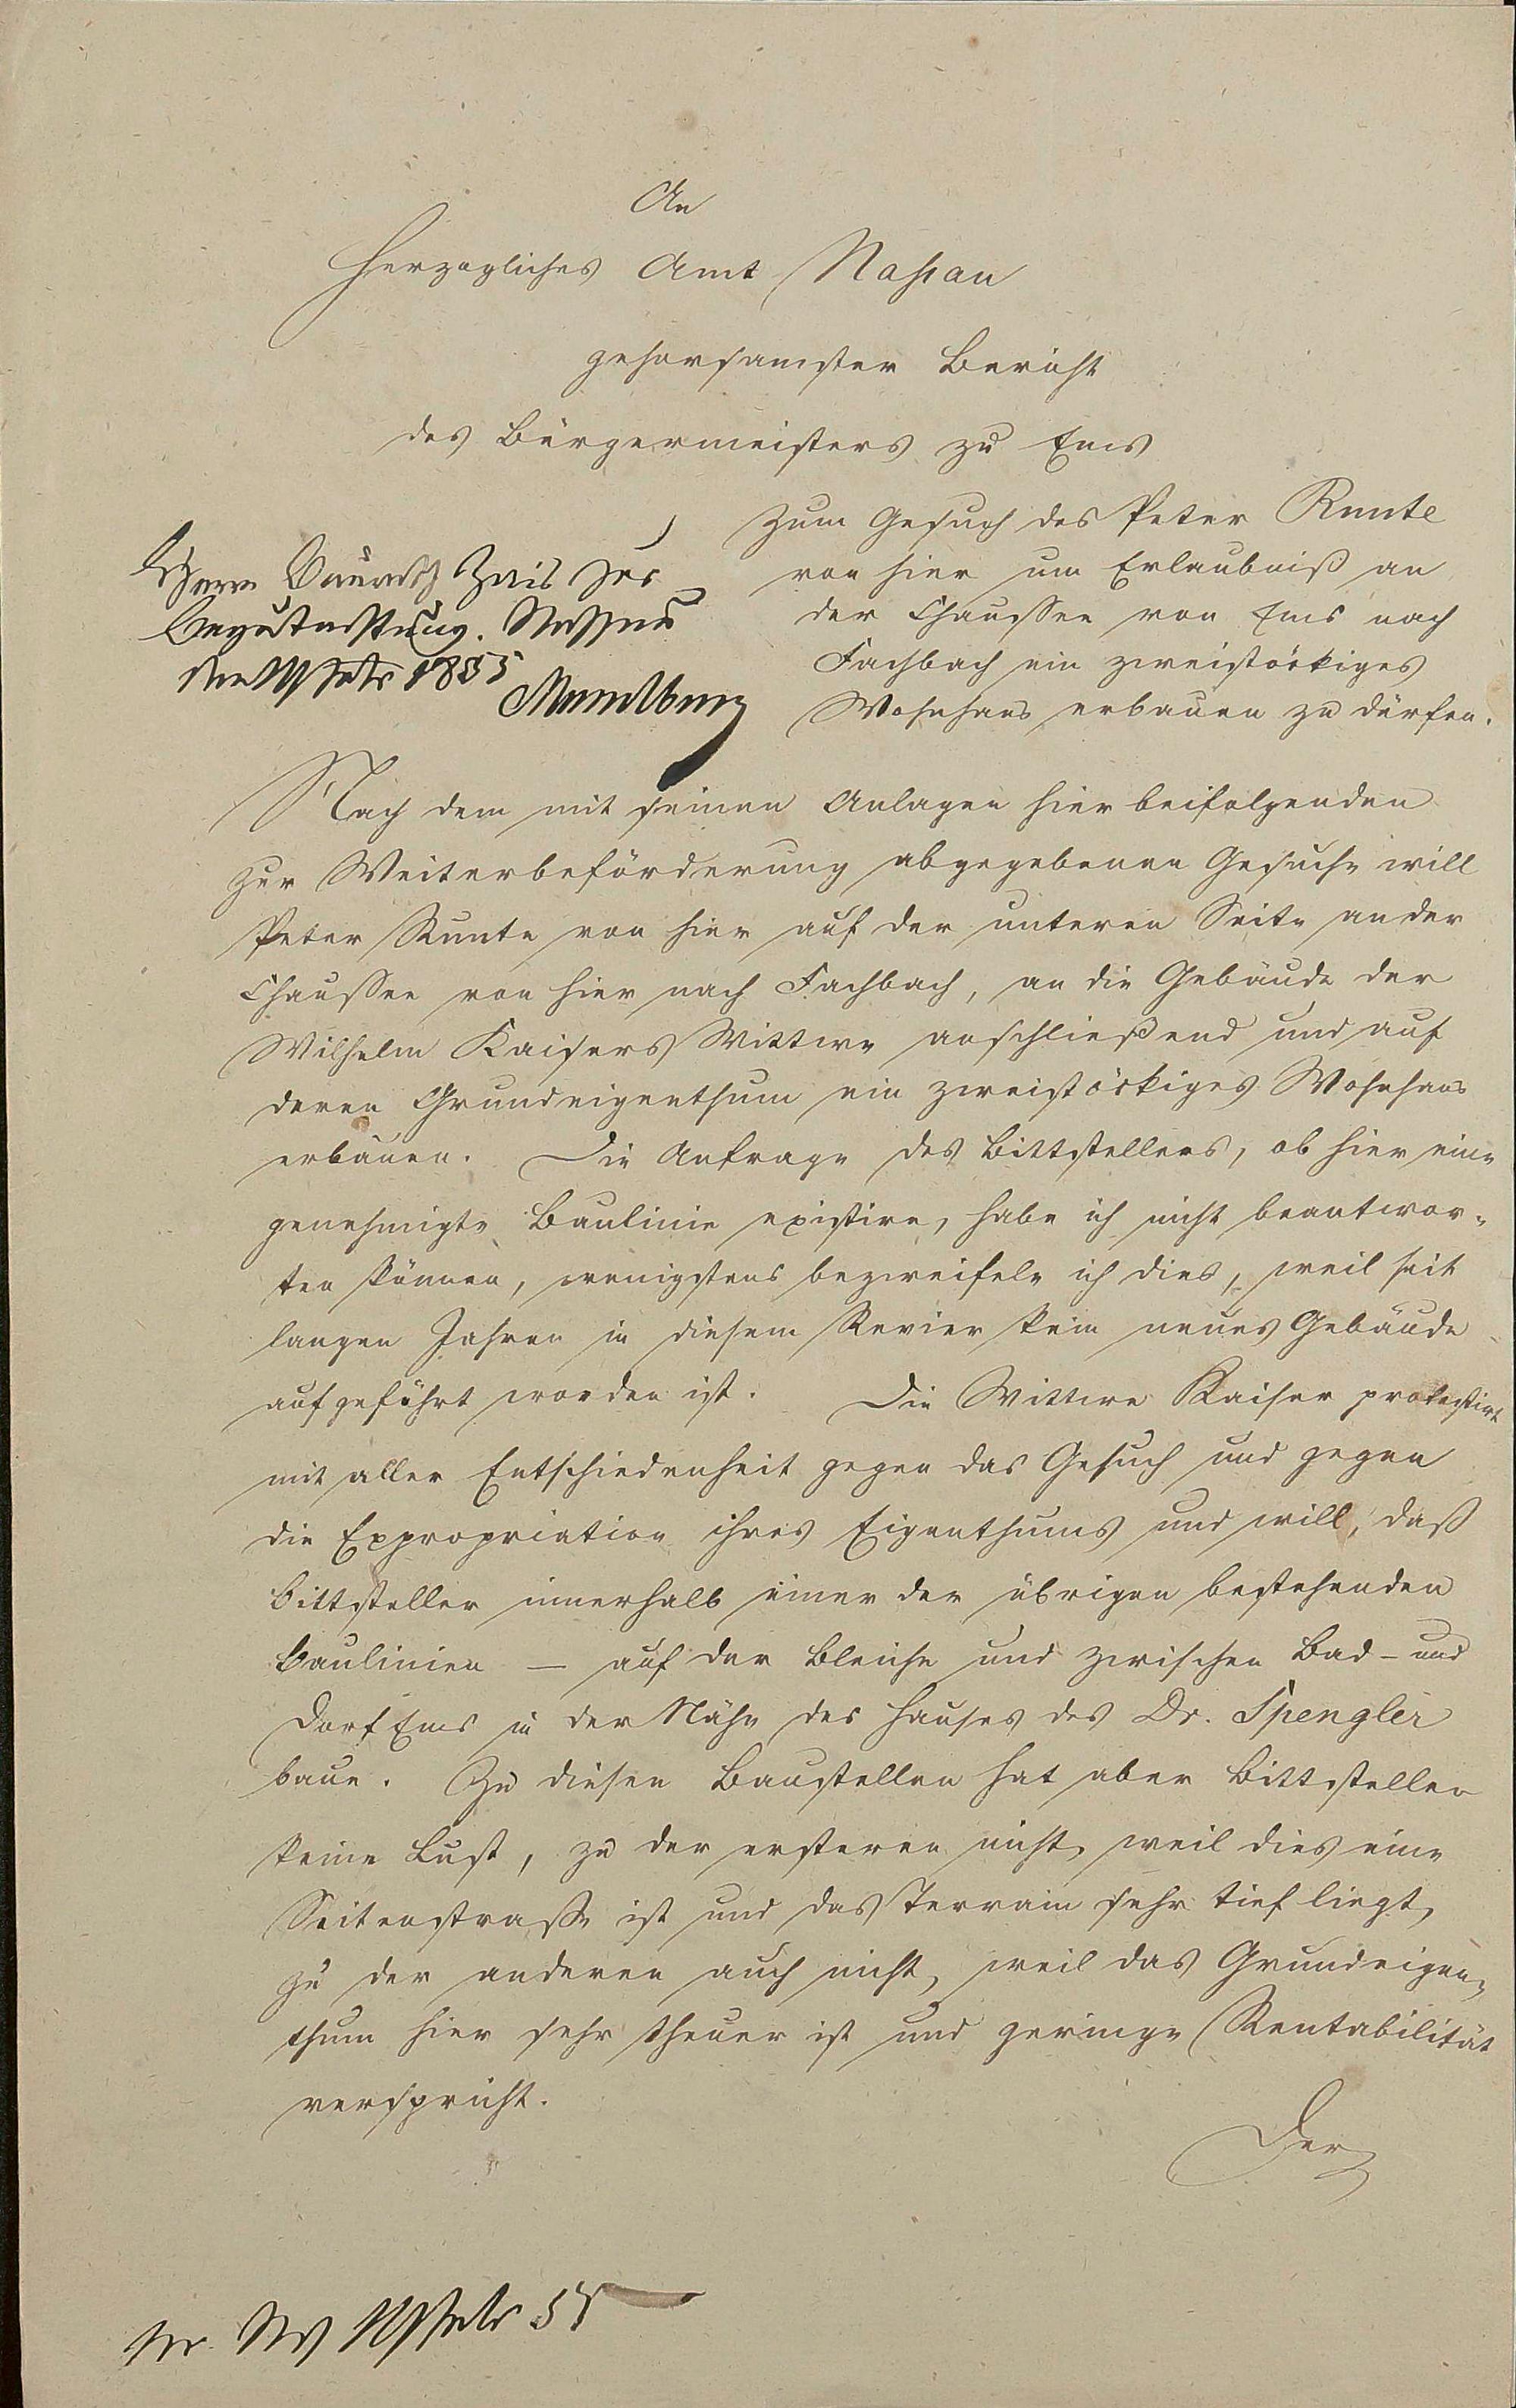 An
Herzogliches Amt Nassau
gehorsamster Bericht
des Bürgermeisters zu Ems
zum Gesuch des Peter Runte
von hier um Erlaubniß an
der Chaussee von Ems nach
Fachbach ein zweistöckiges
Wohnhaus erbauen zu dürfen.
Herrn Baurath Zais zur
Begutachtung. Nassau
den 1855
Nach dem mit seinen Anlagen hier beifolgenden
zur Weiterbeförderung abgegebenen Gesuche will
Peter Runte von hier auf der unteren Seite an der
Chaussee von hier nach Fachbach, an die Gebäude der
Wilhelm Kaisers Wittwe anschließend und auf
deren Grundeigenthum ein zweistöckiges Wohnhaus
erbauen. Die Anfrage des Bittstellers, ob hier eine
genehmigte Baulinie existire, habe ich nicht beantwor-
ten können, wenigstens bezweifele ich dies, weil seit
langen Jahren in diesem Revier kein neues Gebäude
aufgeführt worden ist. Die Wittwe Kaiser protestirt
mit aller Entschiedenheit gegen das Gesuch und gegen
die Expropriation ihres Eigenthums und will, daß
Bittsteller innerhalb einer der übrigen bestehenden
Baulinien — auf der Bleiche und zwischen Bad- und
Dorf Ems in der Nähe des Hauses des Dr. Spengler
baue. Zu diesen Baustellen hat aber Bittsteller
keine Lust, zu der ersteren nicht, weil dies eine
Seitenstraße ist und das Terrain sehr tief liegt,
zu der anderen auch nicht, weil das Grundeigen-
thum hier sehr theuer ist und geringe Rentabilität
verspricht.
Der
55